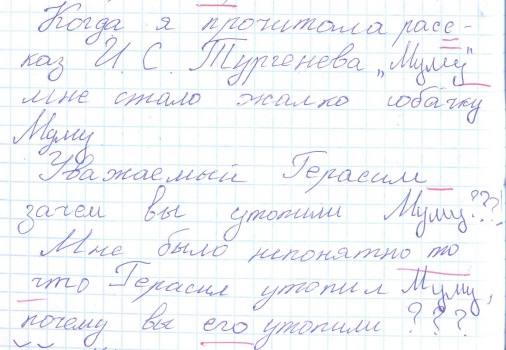 Когда я прочитала расс-
каз И. С. Тургенева „Муму"
мне стало жалко собачку
Муму
Уважаемый Герасим
зачем вы утопили Муму???!
Мне было непонятно то
что Герасим утопил Муму,
почему вы его утопили ???